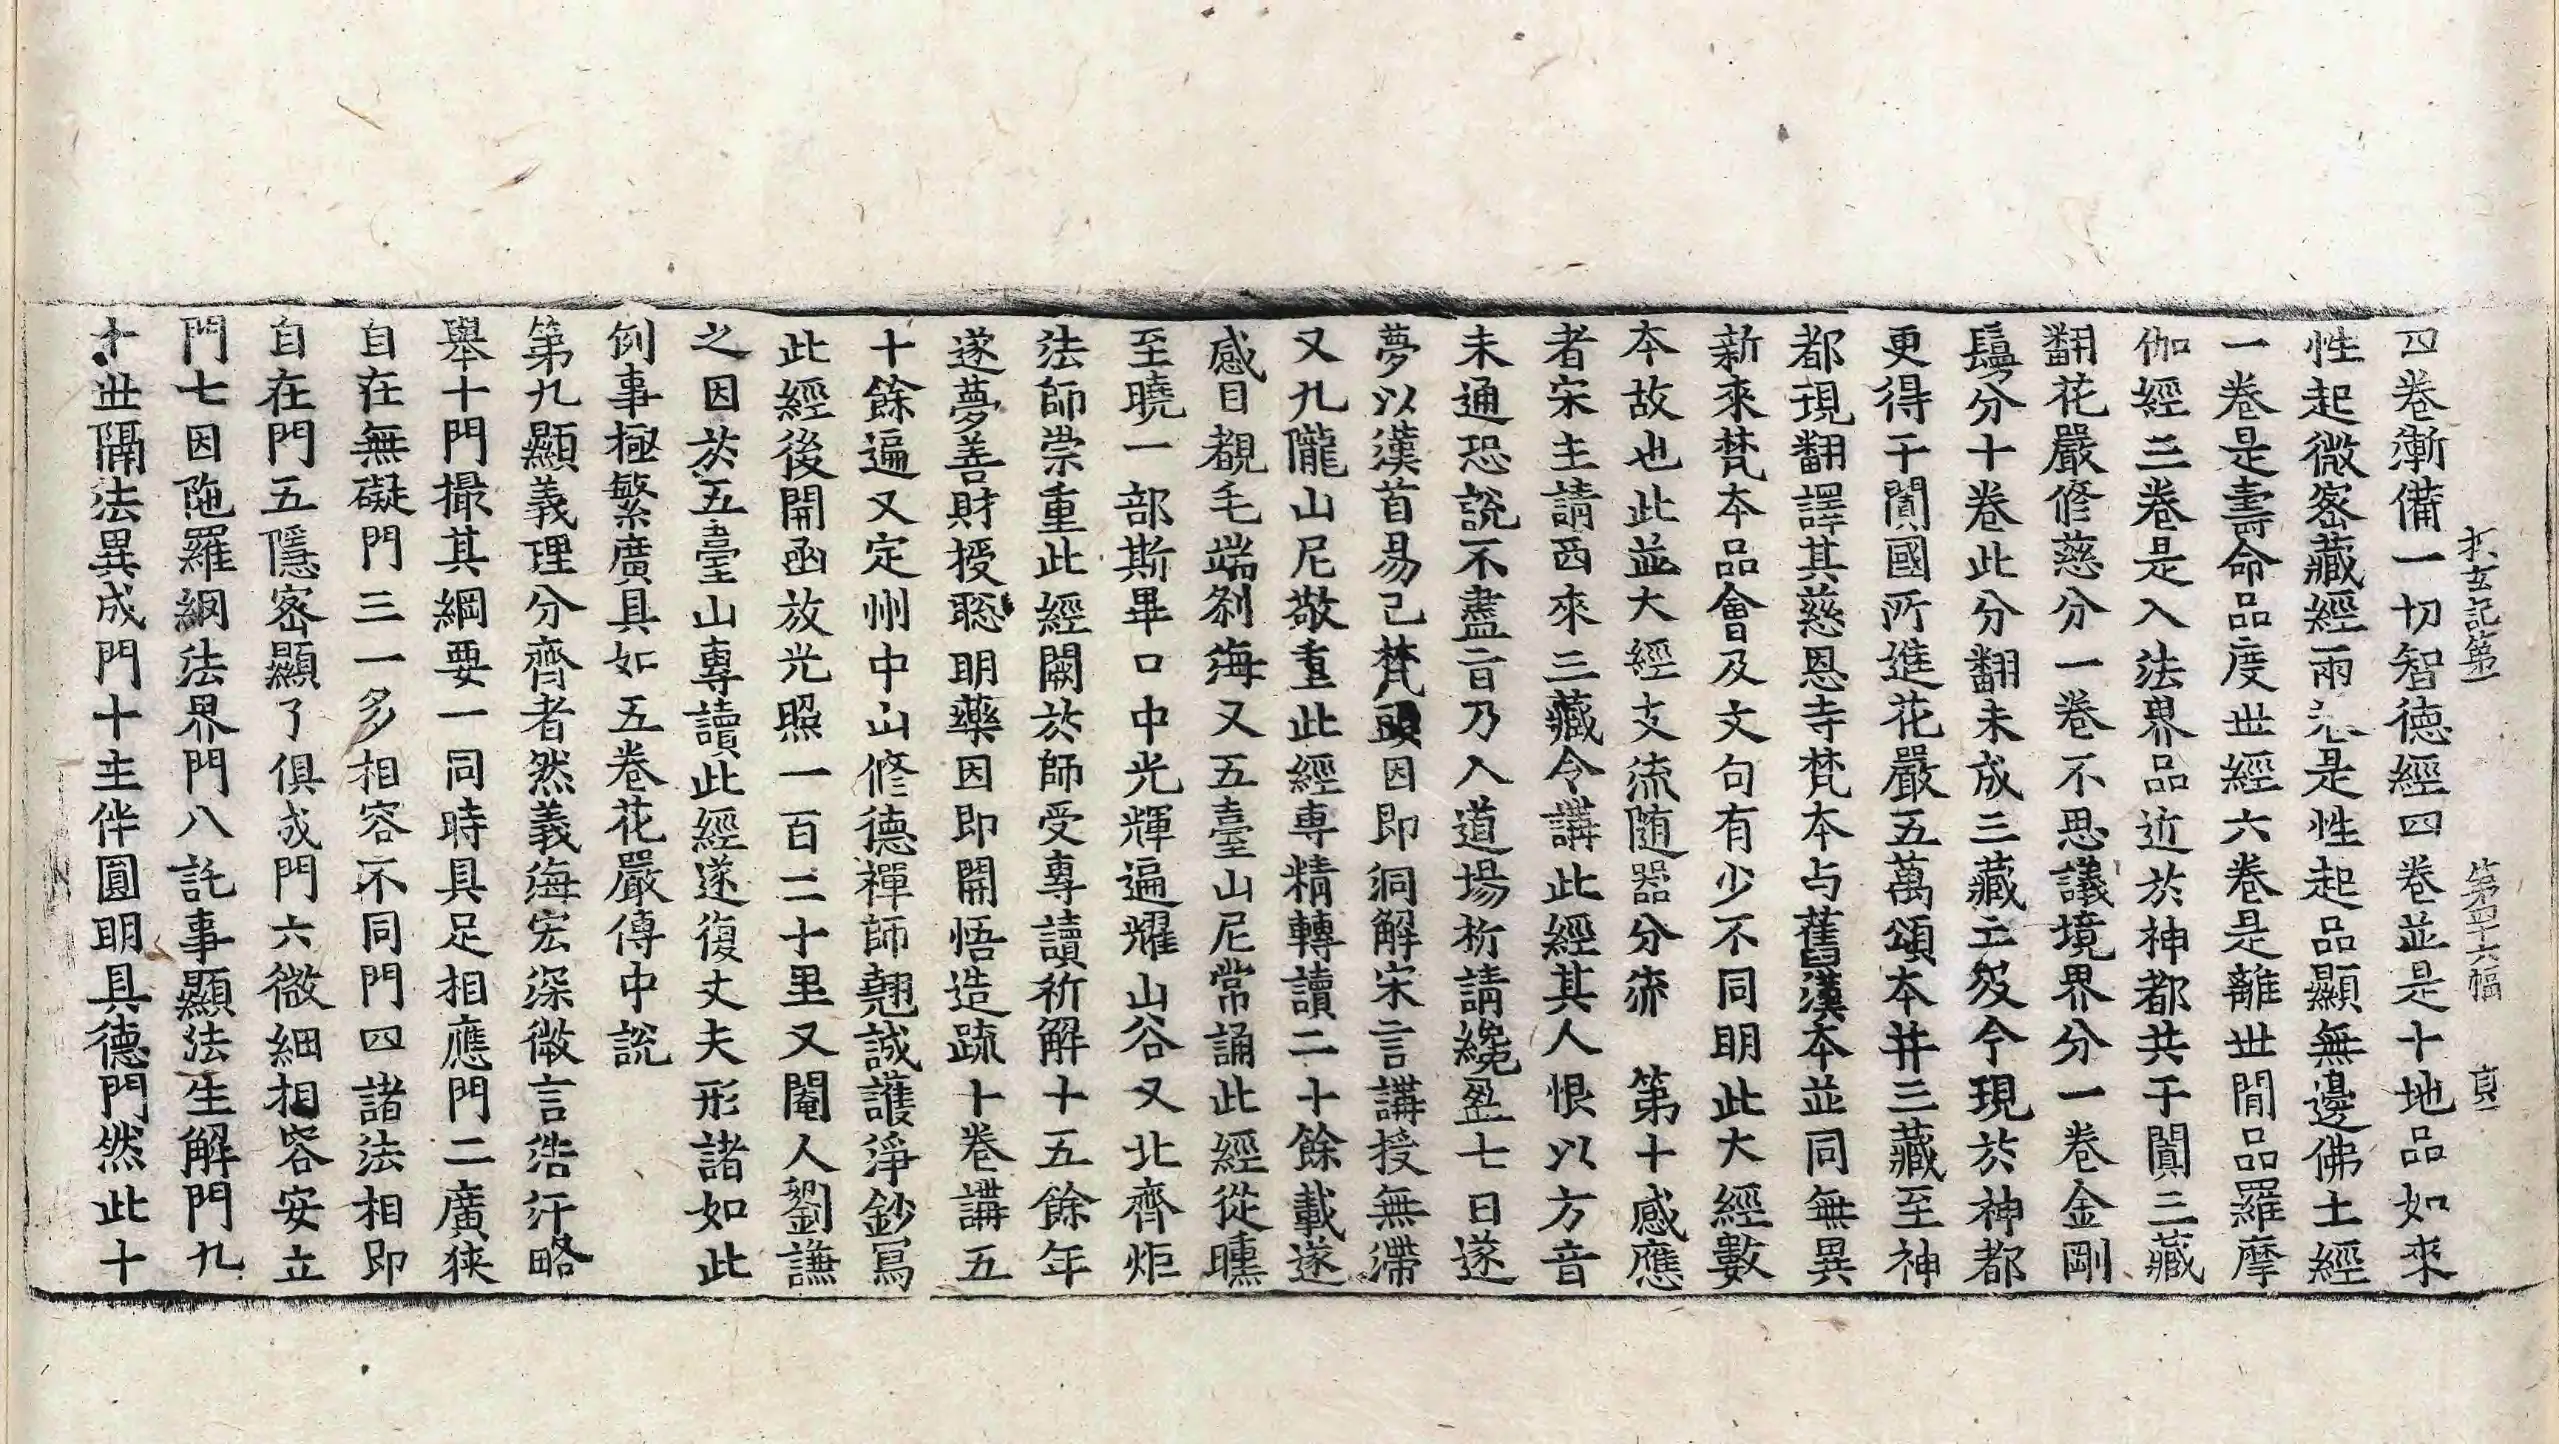 探玄記第一　第四十六幅　真
四卷漸備一切智德經四卷並是十地品如來
性起微密藏經兩卷是性起品顯無邊佛土經
一卷是壽命品度世經六卷是離世閒品羅摩
伽經三卷是入法界品近於神都共于闐三藏
翻花嚴修慈分一卷不思議境界分一卷金剛
鬘分十卷此分翻未成三藏亡歿今現於神都
更得于闐國所進花嚴五萬頌本并三藏至神
都現翻譯其慈恩寺梵本与舊漢本並同無異
新來梵本品會及文句有少不同明此大經數
本故也此並大經支流随器分流　第十感應
者宋主請西來三藏令講此經其人恨以方音
未通恐說不盡旨乃入道場析請纔盈七日遂
夢以漢首易己梵頭因即洞解宋言講授無滯
又九隴山尼敬重此經専精轉讀二十餘載遂
感目覩毛端刹海又五臺山尼常誦此經從曛
至曉一部斯畢口中光輝遍耀山谷又北齊炬
法師崇重此經闕於師受專讀祈解十五餘年
遂夢善財授聡明藥因即開悟造疏十卷講五
十餘遍又定州中山修德禪師翹誠護淨鈔寫
此經後開函放光照一百二十里又閹人劉謙
之因於五臺山專讀此經遂復丈夫形諸如此
例事極繁廣具如五卷花嚴傳中說
第九顯義理分齊者然義海宏深微言浩汗略
舉十門撮其綱要一同時具足相應門二廣狹
自在無礙門三一多相容不同門四諸法相即
自在門五隱密顯了俱成門六微細相容安立
門七因陁羅網法界門八託事顯法生解門九
十世隔法異成門十主伴圓明具德門然此十